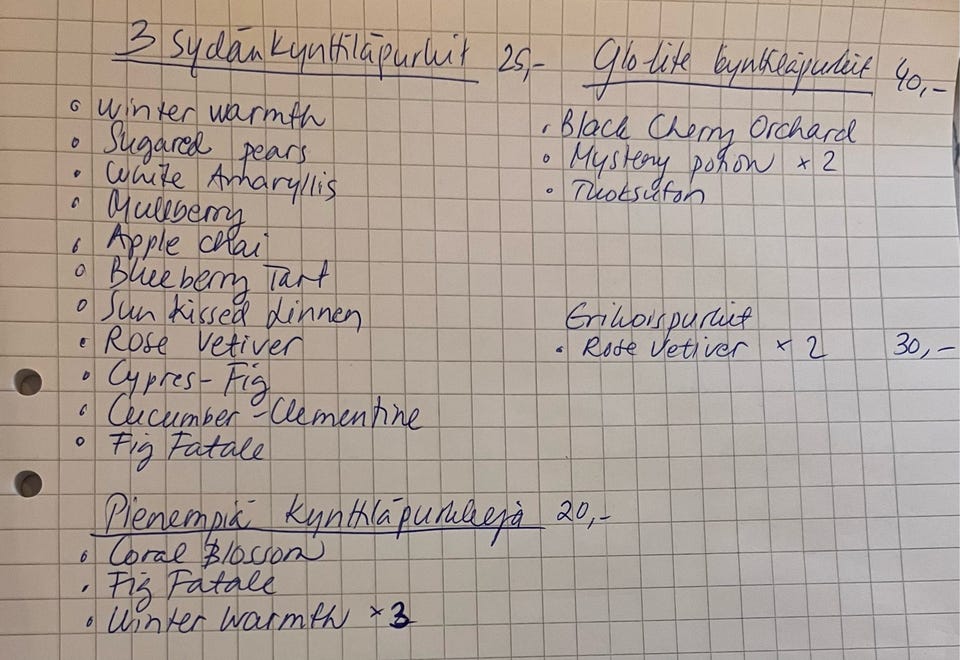 3 Sydänkynttiläpurkit 25,-
• Winter warmth
• Sugared pears
• White Amaryllis
• Mullberry
• Apple chai
• Blueberry Tart
• Sun kissed Linnen
• Rose Vetiver
• Cypres-Fig
• Cucumber-Clementine
• Fig Fatale
Pienempiä kynttiläpurkkeja 20,-
• Coral Blossom
• Fig Fatale
• Winter Warmth x 3
Glo lite kynttiläpurkit 40,-
• Black Cherry Orchard
• Mystery potion x 2
• Tuoksuton
Erikoispurkit
• Rose Vetiver x 2 30,-